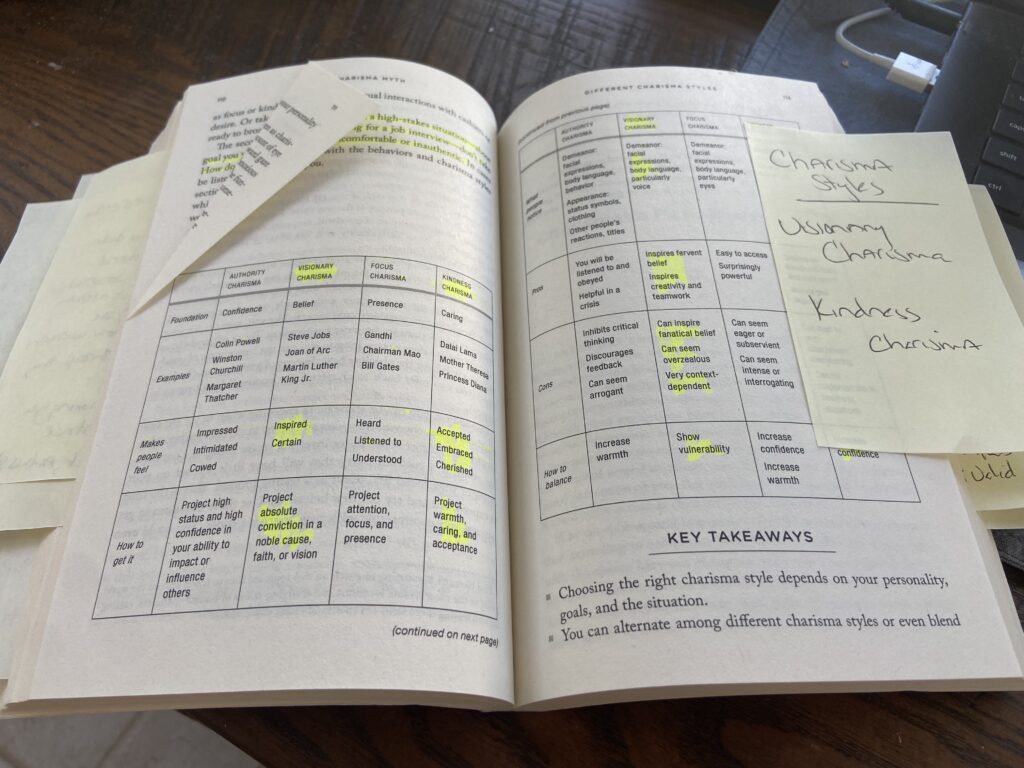 110
CHARISMA MYTH
ual interactions with
as focus or kind
desire. Or tak
a high-stakes situation
ready to
ing for a job interview
The sec
comfortable or inauthentic. In
goal you
with the behaviors and charisma styles
How do
you.
be
your personality
AUTHORITY CHARISMA
VISIONARY CHARISMA
FOCUS CHARISMA
KINDNESS CHARISMA
Foundation
Confidence
Belief
Presence
Caring
Examples
Colin Powell
Winston
Churchill
Margaret
Thatcher
Steve Jobs
Joan of Arc
Martin Luther
King Jr.
Gandhi
Chairman Mao
Bill Gates
Dalai Lama
Mother Theresa
Princess Diana
Makes
people
feel
Impressed
Intimidated
Cowed
Inspired
Certain
Heard
Listened to
Understood
Accepted
Embraced
Cherished
How to
get it
Project high
status and high
confidence in
your ability to
impact or
influence
others
Project
absolute
conviction in a
noble cause,
faith, or vision
Project
attention,
focus, and
presence
Project
warmth,
caring, and
acceptance
(continued on next page)
DIFFERENT CHARISMA STYLES
(continued from previous page)
AUTHORITY
CHARISMA
VISIONARY
CHARISMA
FOCUS
CHARISMA
What
people
notice
Demeanor:
facial
expressions,
body language,
behavior
Appearance:
status symbols,
clothing
Other people's
reactions, titles
Demeanor:
facial
expressions,
body language,
particularly
voice
Demeanor:
facial
expressions,
body language,
particularly
eyes
Pros
You will be
listened to and
obeyed
Helpful in a
crisis
Inspires fervent
belief
Inspires
creativity and
teamwork
Easy to access
Surprisingly
powerful
Cons
Inhibits critical
thinking
Discourages
feedback
Can seem
arrogant
Can inspire
fanatical belief
Can seem
overzealous
Very context-
dependent
Can seem
eager or
subservient
Can seem
intense or
interrogating
How to
balance
Increase
warmth
Show
vulnerability
Increase
confidence
Increase
warmth
confidence
KEY TAKEAWAYS
Choosing the right charisma style depends on your personality,
goals, and the situation.
You can alternate among different charisma styles or even blend
Charisma
Styles
Visionary
Charisma
Kindness
Charisma
Valid
shift
ctrl